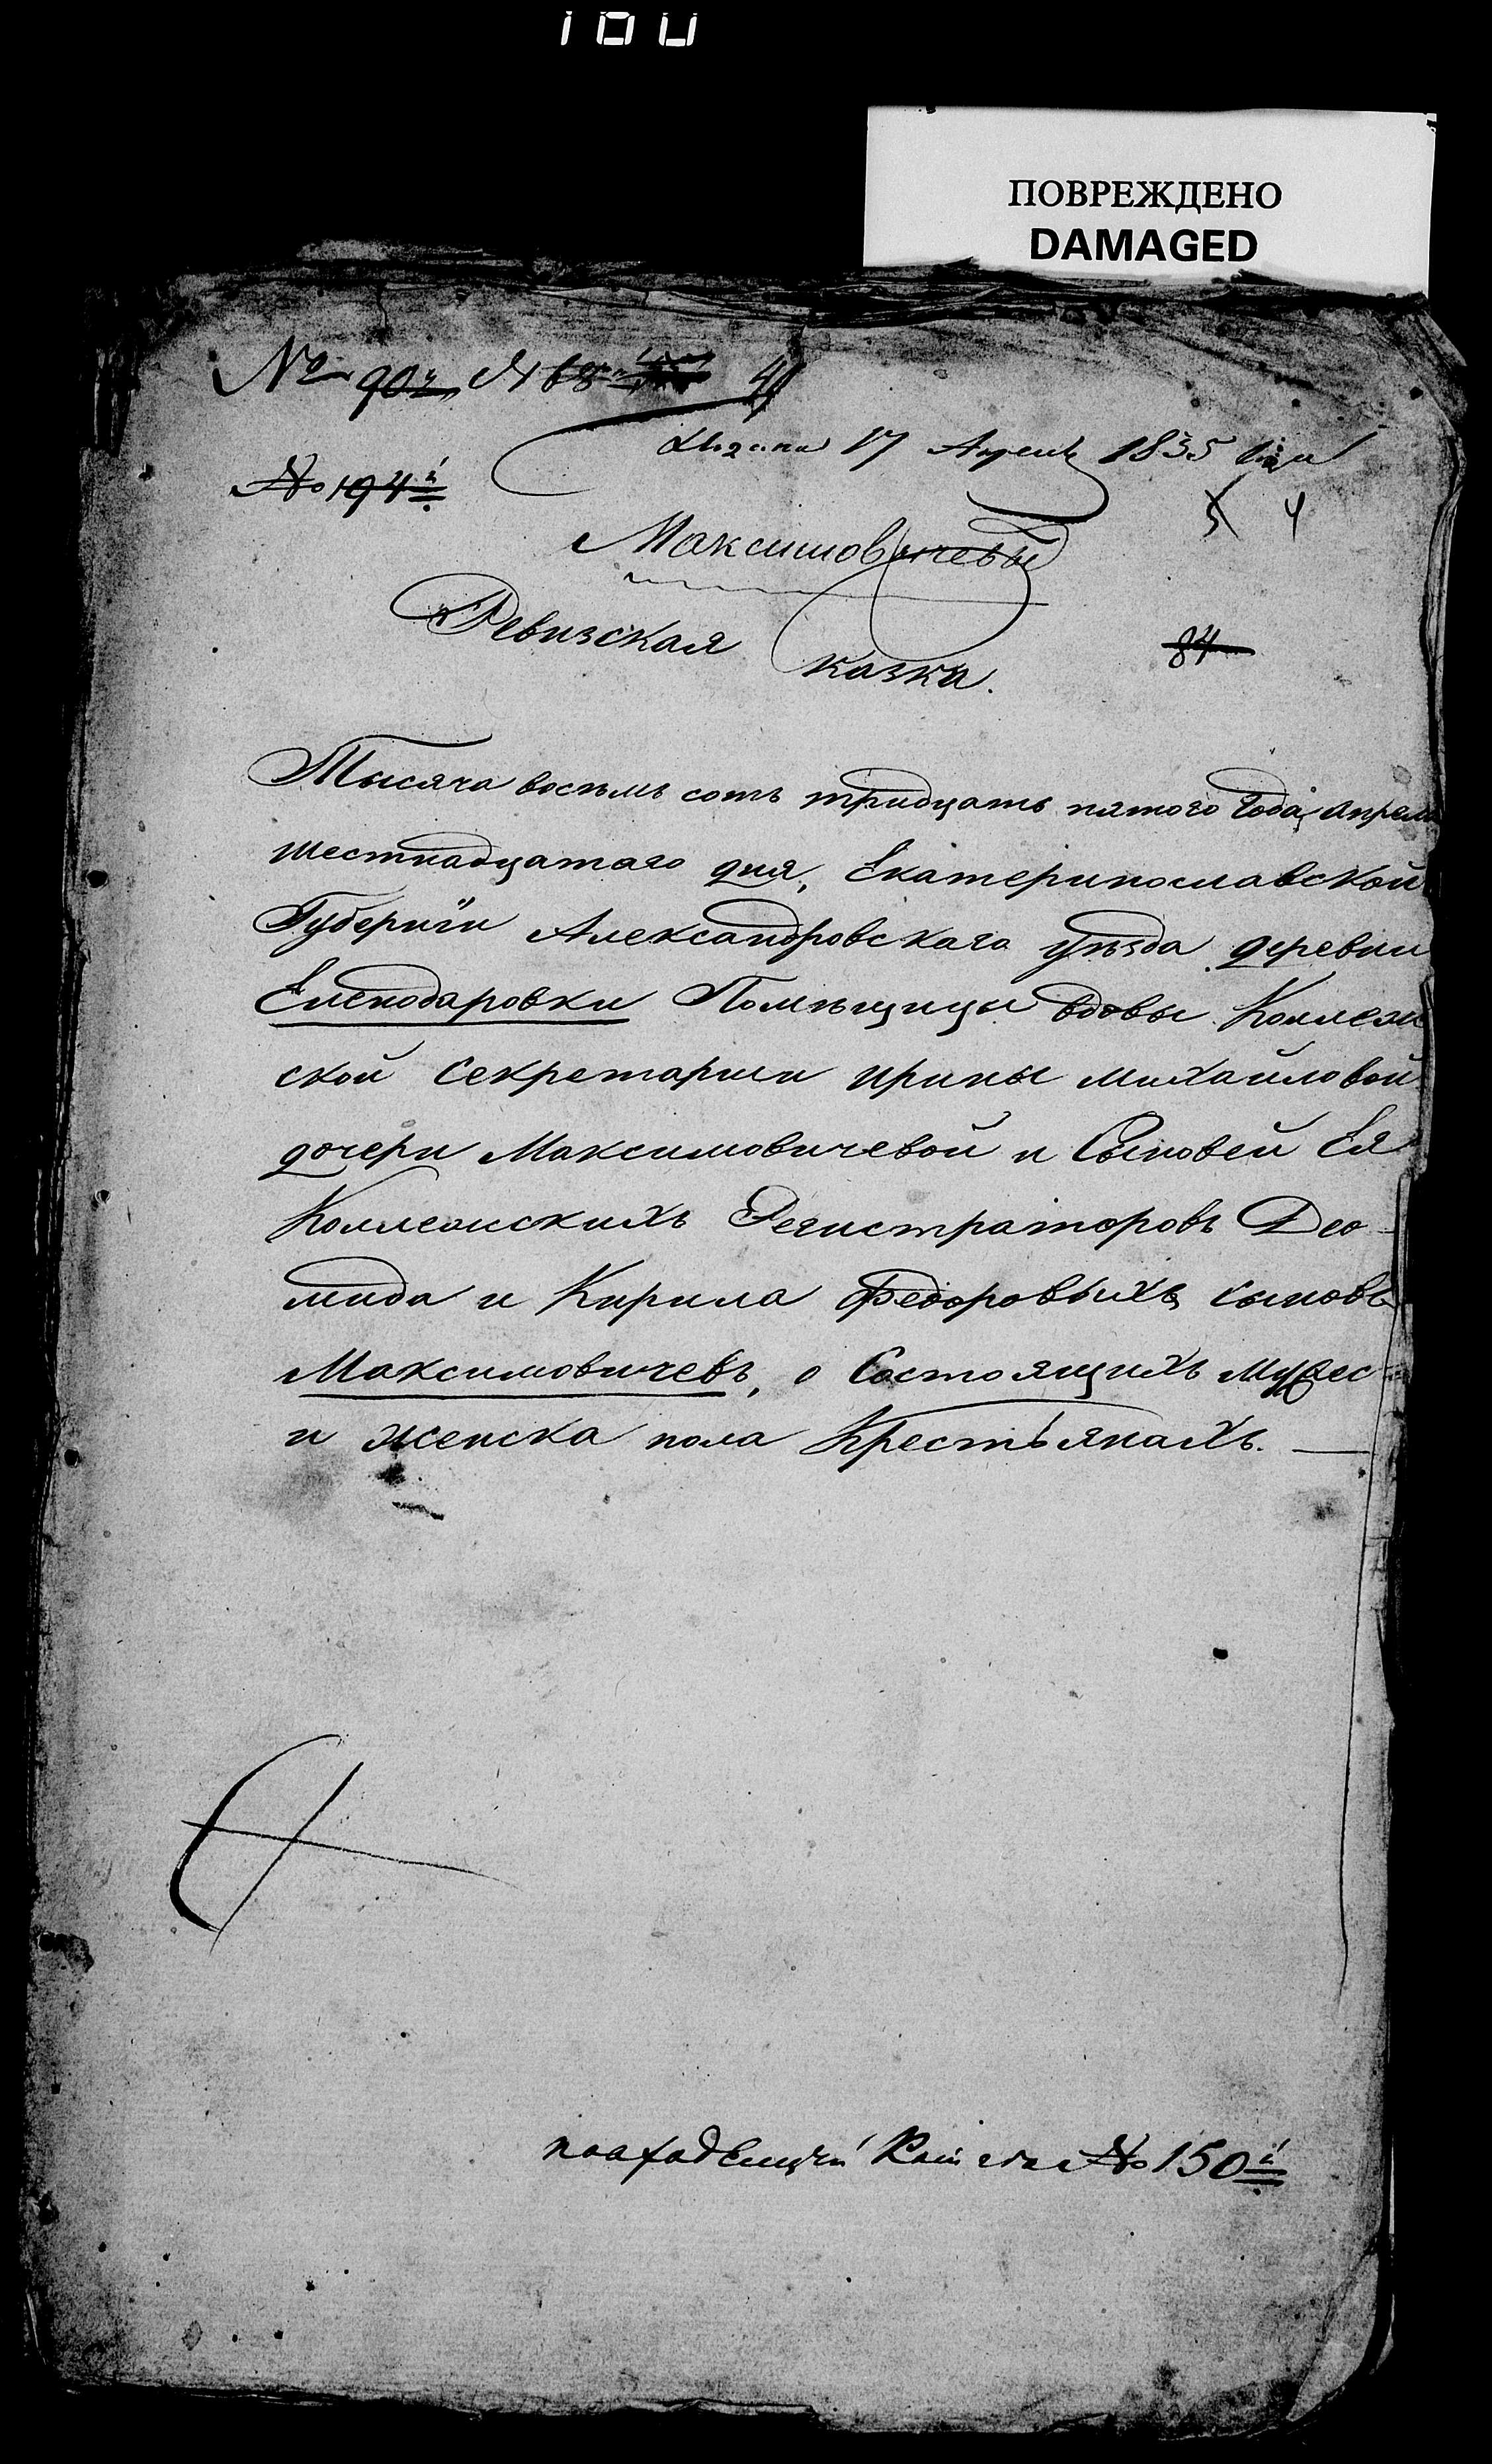 ПОВРЕЖДЕНО
DAMAGED
№ 90й
17 Апреля 1835 года
№ 194й
5 4
Максимовичевы
Ревизская
Сказка.
84
Тысяча восемь сотъ тридцать пятого года, апреля
шестнадцатаго дня, Екатеринославской
Губернїи Александровскаго уѣзда деревни
Еленодаровки Помѣщицы вдовы Коллеж
ской секретарши Ирины Михайловой
дочери Максимовичевой и Сыновей Ея
Коллежскихъ Регистраторовъ Дио
мида и Кирила Федоровыхъ сыновъ
Максимовичевъ, о Состоящихъ мужес
и женска пола Крестьянахъ.
по № 150й